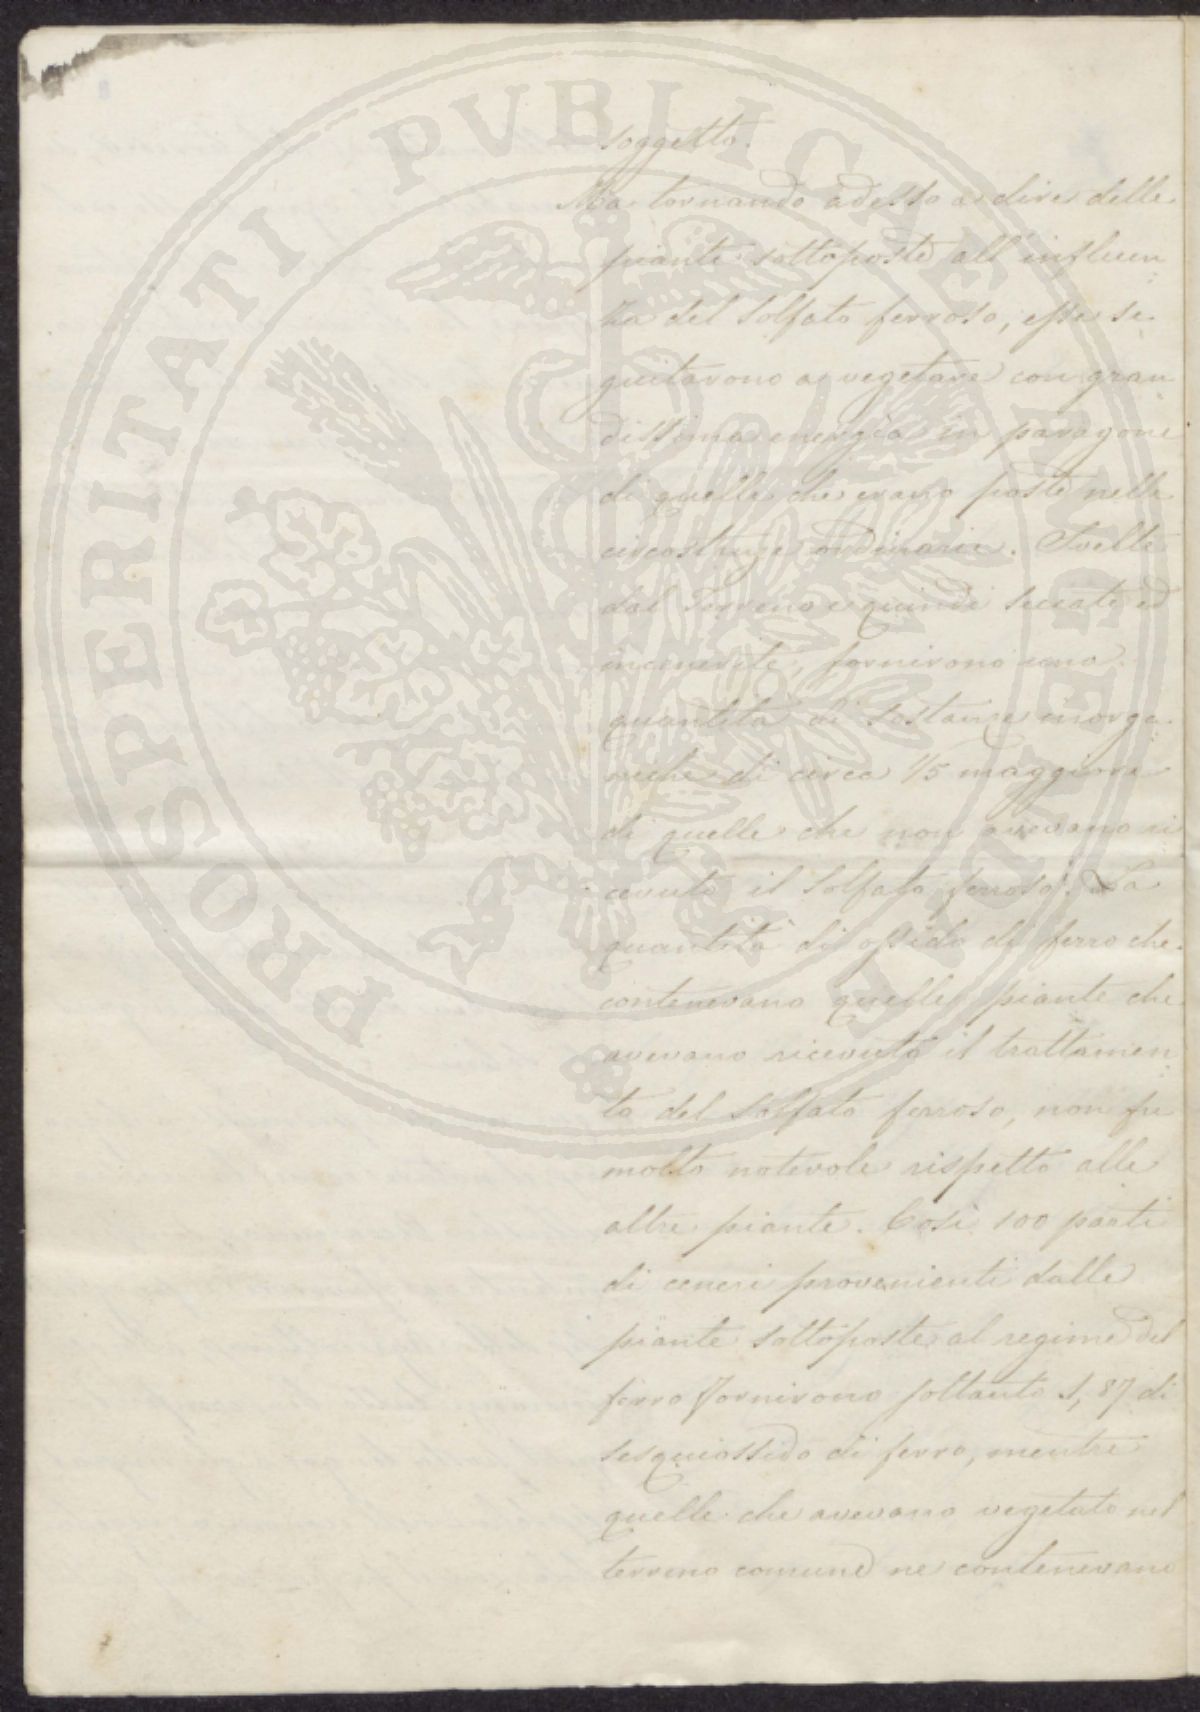 PROSPERITATI PUBLICAE AUGENDAE
soggetto.
Ma tornando adesso a dire delle
piante sottoposte all'influen
za del Solfato ferroso, esse se
guitarono a vegetare con gran
dissima energia in paragone
di quelle che erano poste nelle
circostanze ordinarie. Svelte
dal Terreno e quindi seccate ed
incenerite, fornirono una
quantità di sostanze inorga
niche di circa 1/5 maggiore
di quelle che non avevano ri
cevuto il Solfato ferroso. La
quantità di ossido di ferro che
contenevano quelle piante che
avevano ricevuto il trattamen
to del Solfato ferroso, non fu
molto notevole rispetto alle
altre piante. Così 100 parti
di ceneri provenienti dalle
piante sottoposte al regime del
ferro fornirono soltanto 1,87 di
sesquiossido di ferro, mentre
quelle che avevano vegetato nel
terreno comune ne contenevano